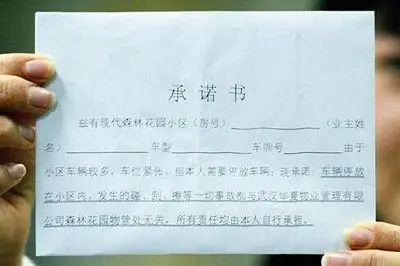 承 诺 书
兹有现代森林花园小区（房号）＿＿＿＿＿＿（业主姓
名）＿＿＿＿＿＿车型＿＿＿＿＿＿车牌号＿＿＿＿由于
小区车辆较多，车位紧张，但本人需要停放车辆；现承诺：车辆停放
在小区内，发生的碰、刮、擦等一切事故都与武汉华夏物业管理有限
公司森林花园物管处无关，所有责任均由本人自行承担。